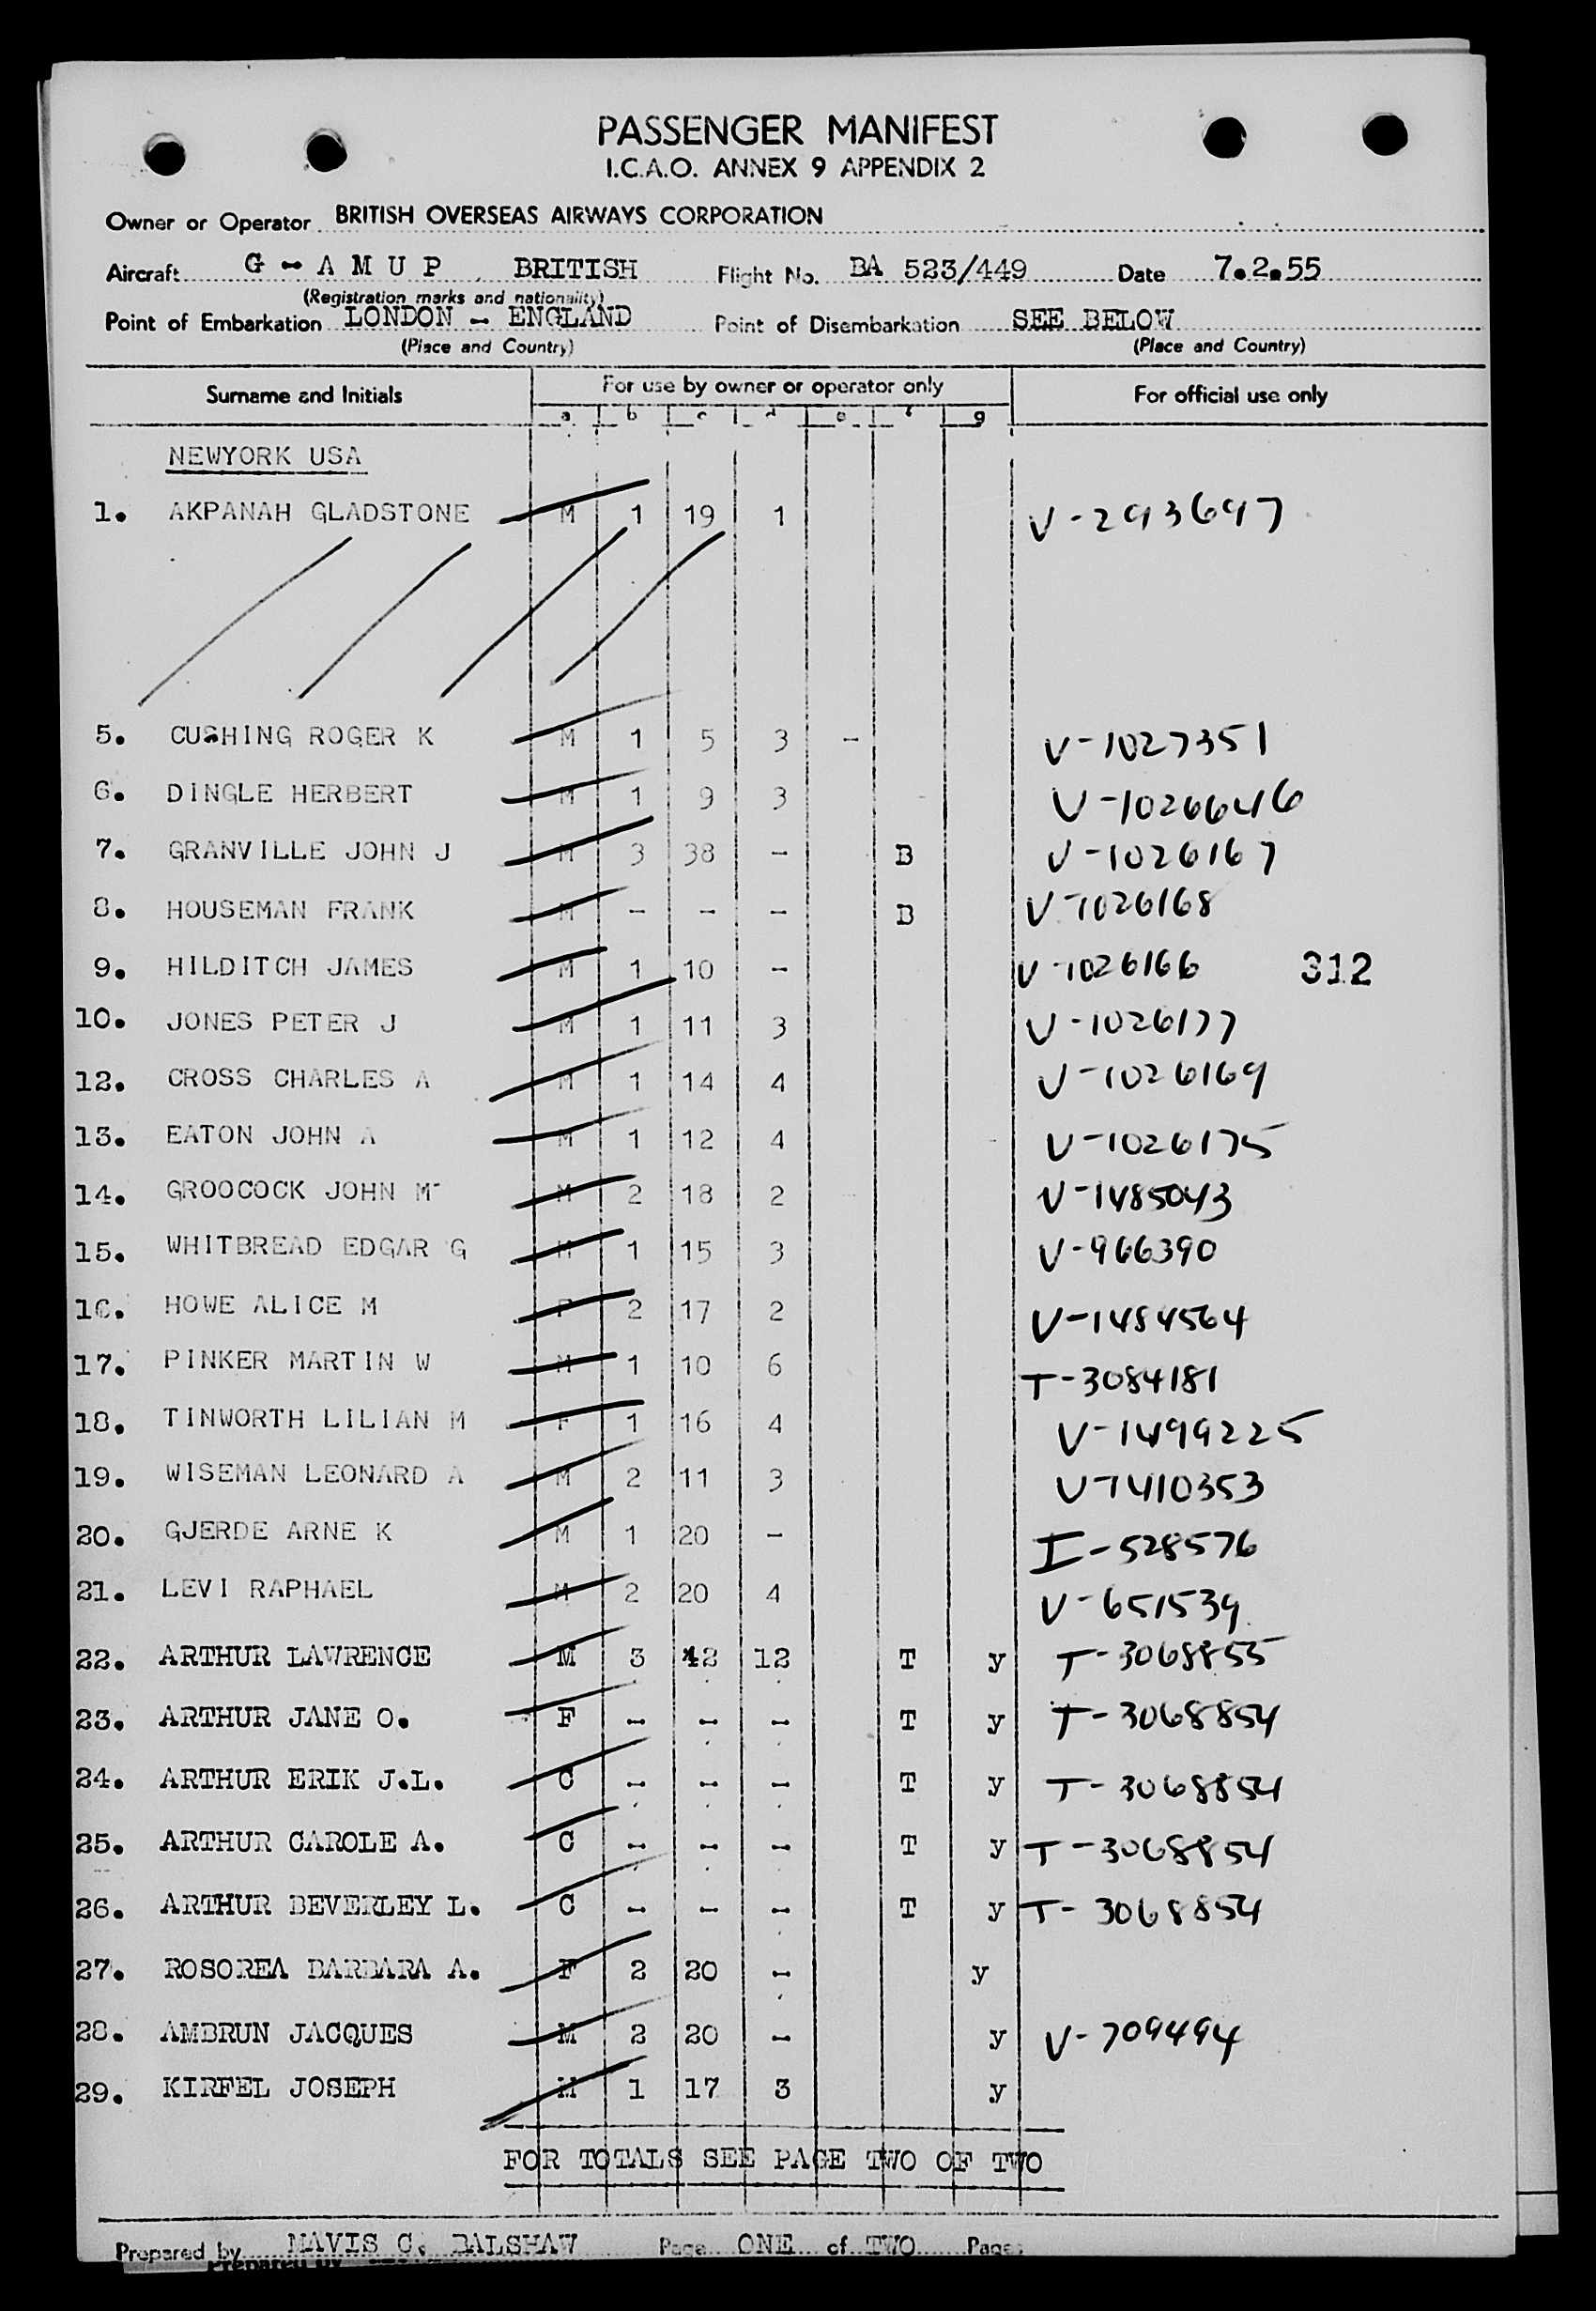 PASSENGER MANIFEST
I.C.A.O. ANNEX 9 APPENDIX 2
Owner or Operator BRITISH OVERSEAS AIRWAYS CORPORATION
Aircraft G - A M U P BRITISH Flight No. BA 523/449 Date 7.2.55
(Registration marks and nationality)
Point of Embarkation LONDON - ENGLAND Point of Disembarkation SEE BELOW
(Place and Country) (Place and Country)
Surname and Initials For use by owner or operator only For official use only
a b c d e f g
NEWYORK USA
1. AKPANAH GLADSTONE M 1 19 1 V-293697
5. CUSHING ROGER K M 1 5 3 - V-1027351
6. DINGLE HERBERT M 1 9 3 V-1026646
7. GRANVILLE JOHN J M 3 38 - B V-1026167
8. HOUSEMAN FRANK M - - - B V-1026168
9. HILDITCH JAMES M 1 10 - V-1026166 312
10. JONES PETER J M 1 11 3 V-1026177
12. CROSS CHARLES A M 1 14 4 V-1026169
13. EATON JOHN A M 1 12 4 V-1026175
14. GROOCOCK JOHN M M 2 18 2 V-1485043
15. WHITBREAD EDGAR G M 1 15 3 V-966390
16. HOWE ALICE M F 2 17 2 V-1484564
17. PINKER MARTIN W M 1 10 6 T-3084181
18. TINWORTH LILIAN M F 1 16 4 V-1499225
19. WISEMAN LEONARD A M 2 11 3 V-1410353
20. GJERDE ARNE K M 1 20 - I-528576
21. LEVI RAPHAEL M 2 20 4 V-651539
22. ARTHUR LAWRENCE M 3 42 12 T y T-3068855
23. ARTHUR JANE O. F - - - T y T-3068854
24. ARTHUR ERIK J.L. C - - - T y T-3068854
25. ARTHUR CAROLE A. C - - - T y T-3068854
26. ARTHUR BEVERLEY L. C - - - T y T-3068854
27. ROSOREA BARBARA A. F 2 20 - y
28. AMBRUN JACQUES M 2 20 - y V-709494
29. KIRFEL JOSEPH M 1 17 3 y
FOR TOTALS SEE PAGE TWO OF TWO
Prepared by MAVIS C. BALSHAW Page ONE of TWO Pages
Prepared by